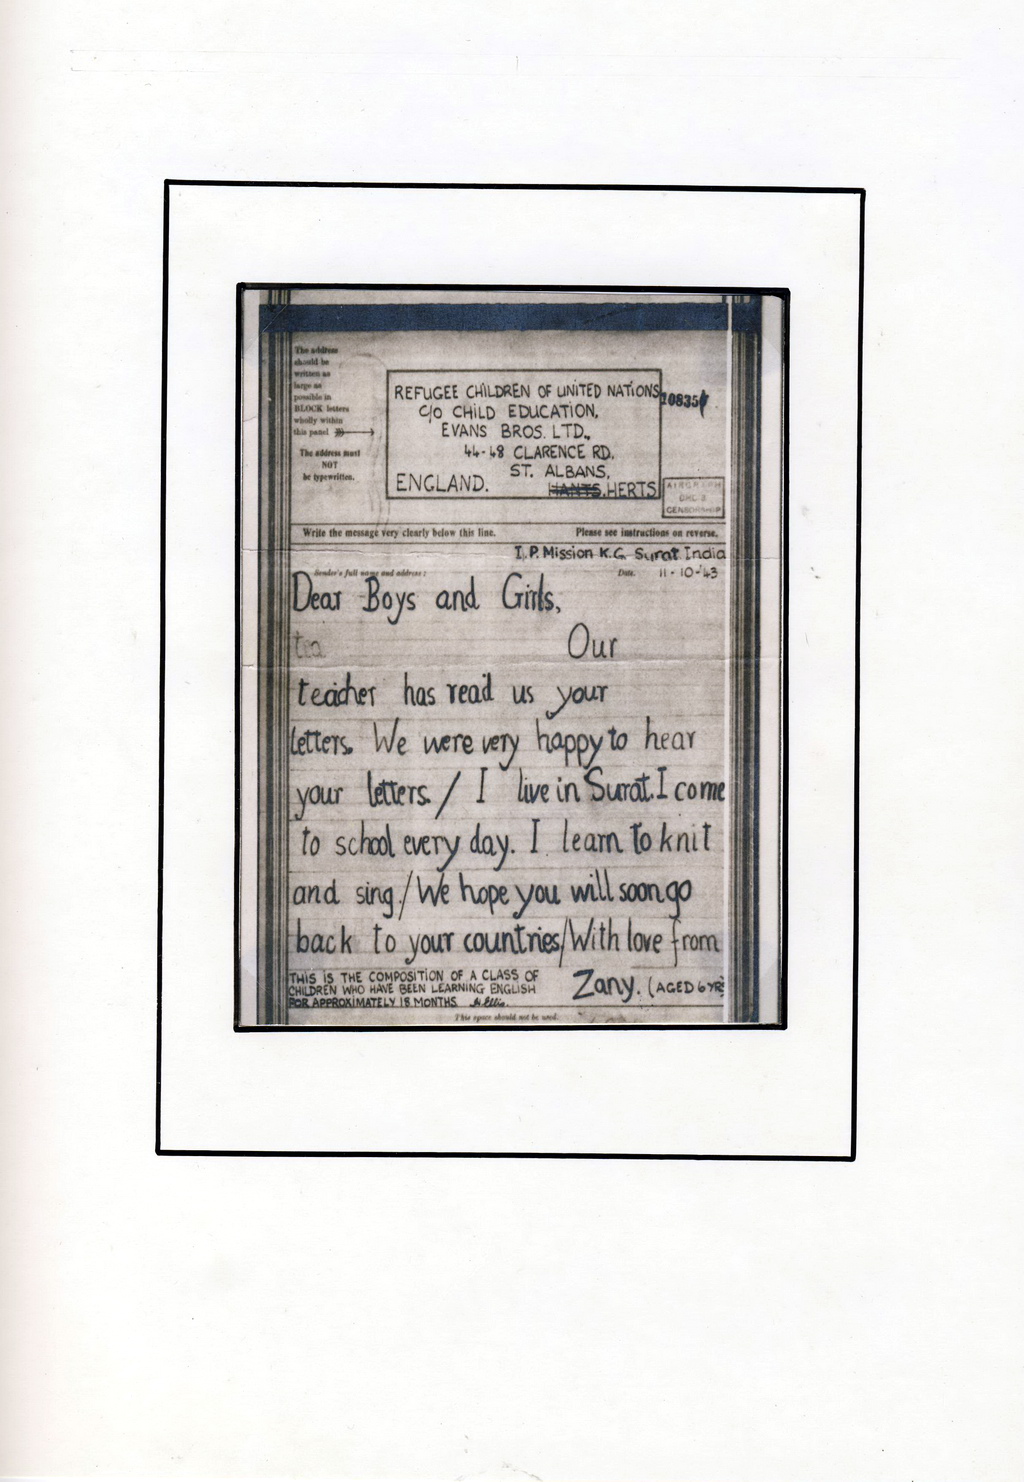 The address
should be
written as
large as
possible in
BLOCK letters
wholly within
this panel
The address must
NOT
be typewritten.
REFUGEE CHILDREN OF UNITED NATIONS
C/O CHILD EDUCATION,
EVANS BROS. LTD.,
44-48 CLARENCE RD,
ST. ALBANS,
ENGLAND. HANTS, HERTS
AIRGRAPH
CENSORSHIP
Write the message very clearly below this line. Please see instructions on reverse.
I.P. Mission K.G. Surat India
Sender's full name and address: Date. 11-10-43
Dear Boys and Girls,
tea Our
teacher has read us your
letters. We were very happy to hear
your letters. / I live in Surat. I come
to school every day. I learn to knit
and sing. / We hope you will soon go
back to your countries / With love from
THIS IS THE COMPOSITION OF A CLASS OF
CHILDREN WHO HAVE BEEN LEARNING ENGLISH
FOR APPROXIMATELY 18 MONTHS
Zany. (AGED 6 YRS)
This space should not be used.